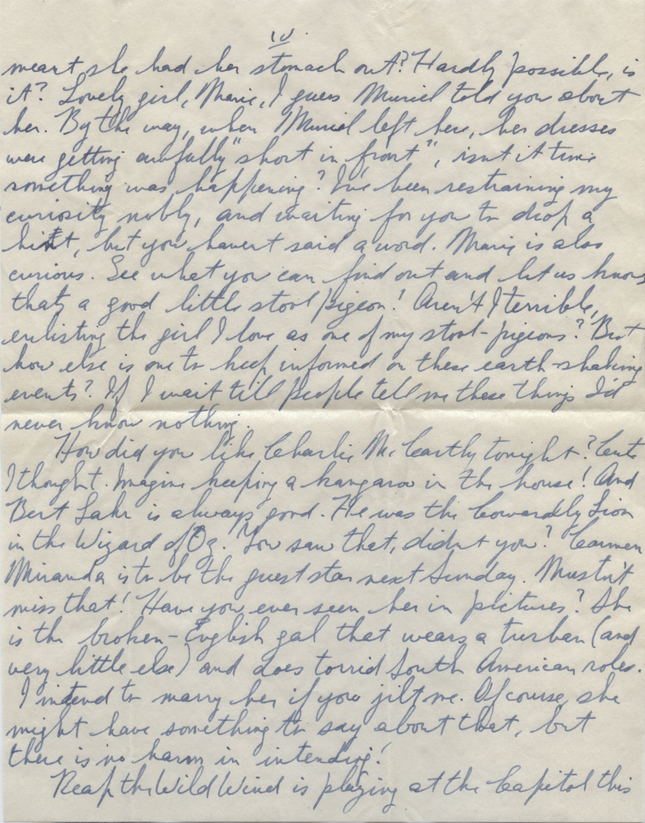 IV
meart she had her stomach out? Hardly possible, is
it? Lovely girl, Marie, I guess Muriel told you about
her. By the way, when Muriel left here, her dresses
were getting awfully "short in front", isnt it time
something was happening? I've been restraining my
curiosity nobly, and waiting for you to drop a
hint, but you havent said a word. Marie is also
curious. See what you can find out and let us know
that's a good little stool pigeon! Aren't I terrible,
enlisting the girl I love as one of my stool-pigeons? But
how else is one to keep informed on these earth-shaking
events? If I wait till people tell me these things I'd
never know nothing.
How did you like Charlie McCarthy tonight? Cute
I thought. Imagine keeping a kangaroo in the house! And
Bert Lahr is always good. He was the Cowardly Lion
in the Wizard of Oz. You saw that, didnt you? Carmen
Miranda is to be the guest star next Sunday. Mustn't
miss that! Have you ever seen her in pictures? She
is the broken-English gal that wears a turban (and
very little else) and does torrid South American roles.
I intend to marry her if you jilt me. Of course, she
might have something to say about that, but
there is no harm in intending!
Reap the Wild Wind is playing at the Capitol this